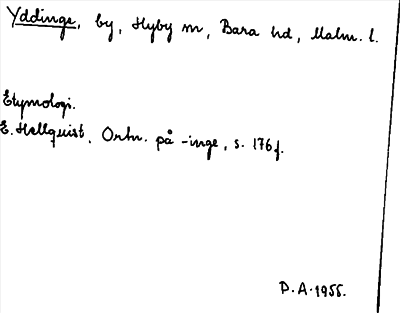 Yddinge, by, Hyby sn, Bara hd, Malm. l.
Etymologi.
E. Hellquist, Ortn. på -inge, s. 176 f.
D. A. 1955.